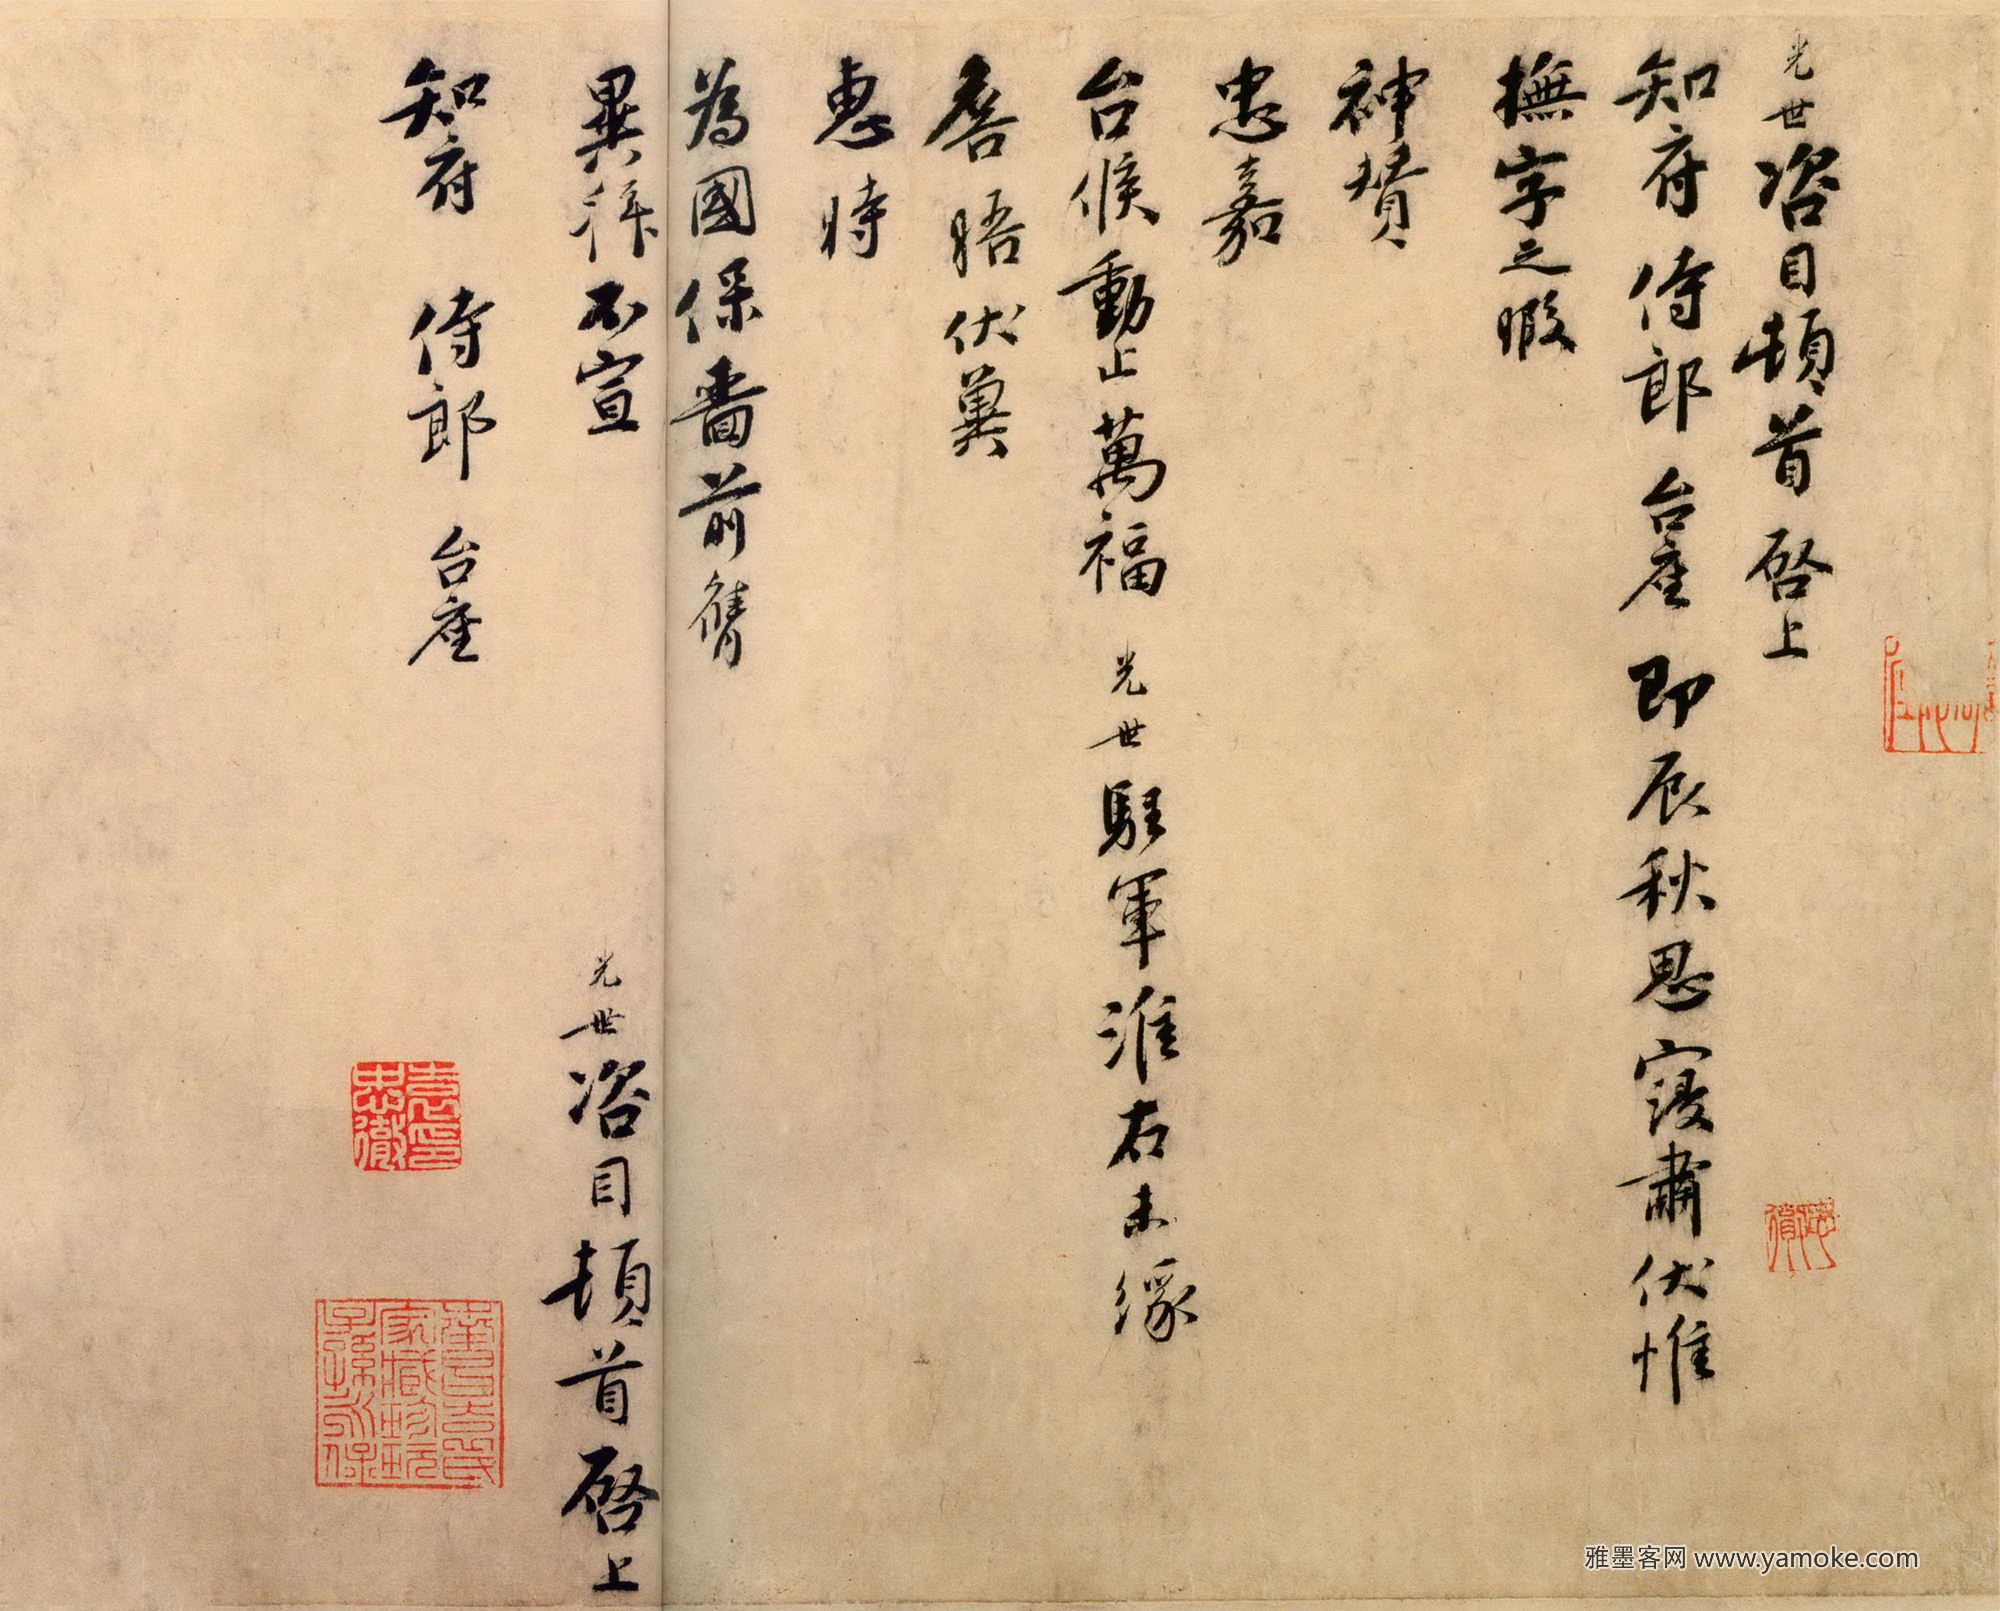 光世咨目頓首啓上
知府侍郎台座即辰秋思寖肅伏惟
撫字之暇
神贊
忠嘉
台候動止萬福光世駐軍淮右未緣
簷晤伏冀
惠時
為國保嗇前膺
異拜不宣
光世咨目頓首啓上
知府侍郎台座
袁氏忠徹
家藏珍玩
子孫永保
雅墨客网 www.yamoke.com